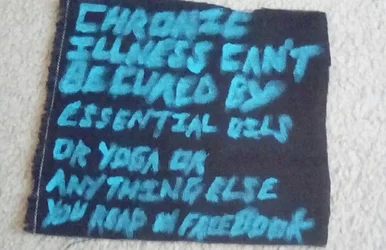 CHRONIC
ILLNESS CAN'T
BE CURED BY
ESSENTIAL OILS
OR YOGA OR
ANYTHING ELSE
YOU READ ON FACEBOOK